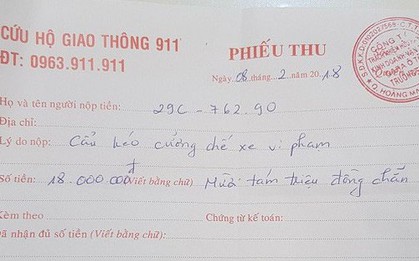 CỨU HỘ GIAO THÔNG 911
ĐT: 0963.911.911
PHIẾU THU
Ngày 08 tháng 2 năm 2018
Họ và tên người nộp tiền: 29C - 762.90
Địa chỉ:
Lý do nộp: Cẩu kéo cưỡng chế xe vi phạm
Số tiền: 18.000 000đ (Viết bằng chữ) Mười tám triệu đồng chẵn
Kèm theo Chứng từ kế toán:
Đã nhận đủ số tiền (Viết bằng chữ):